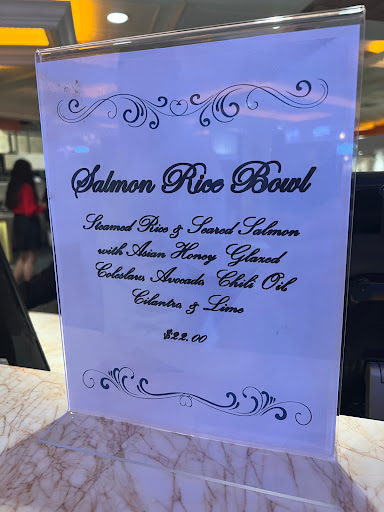 Salmon Rice Bowl
Steamed Rice & Seared Salmon
with Asian Honey Glazed
Coleslaw, Avocado, Chili Oil,
Cilantro, & Lime
$22.00